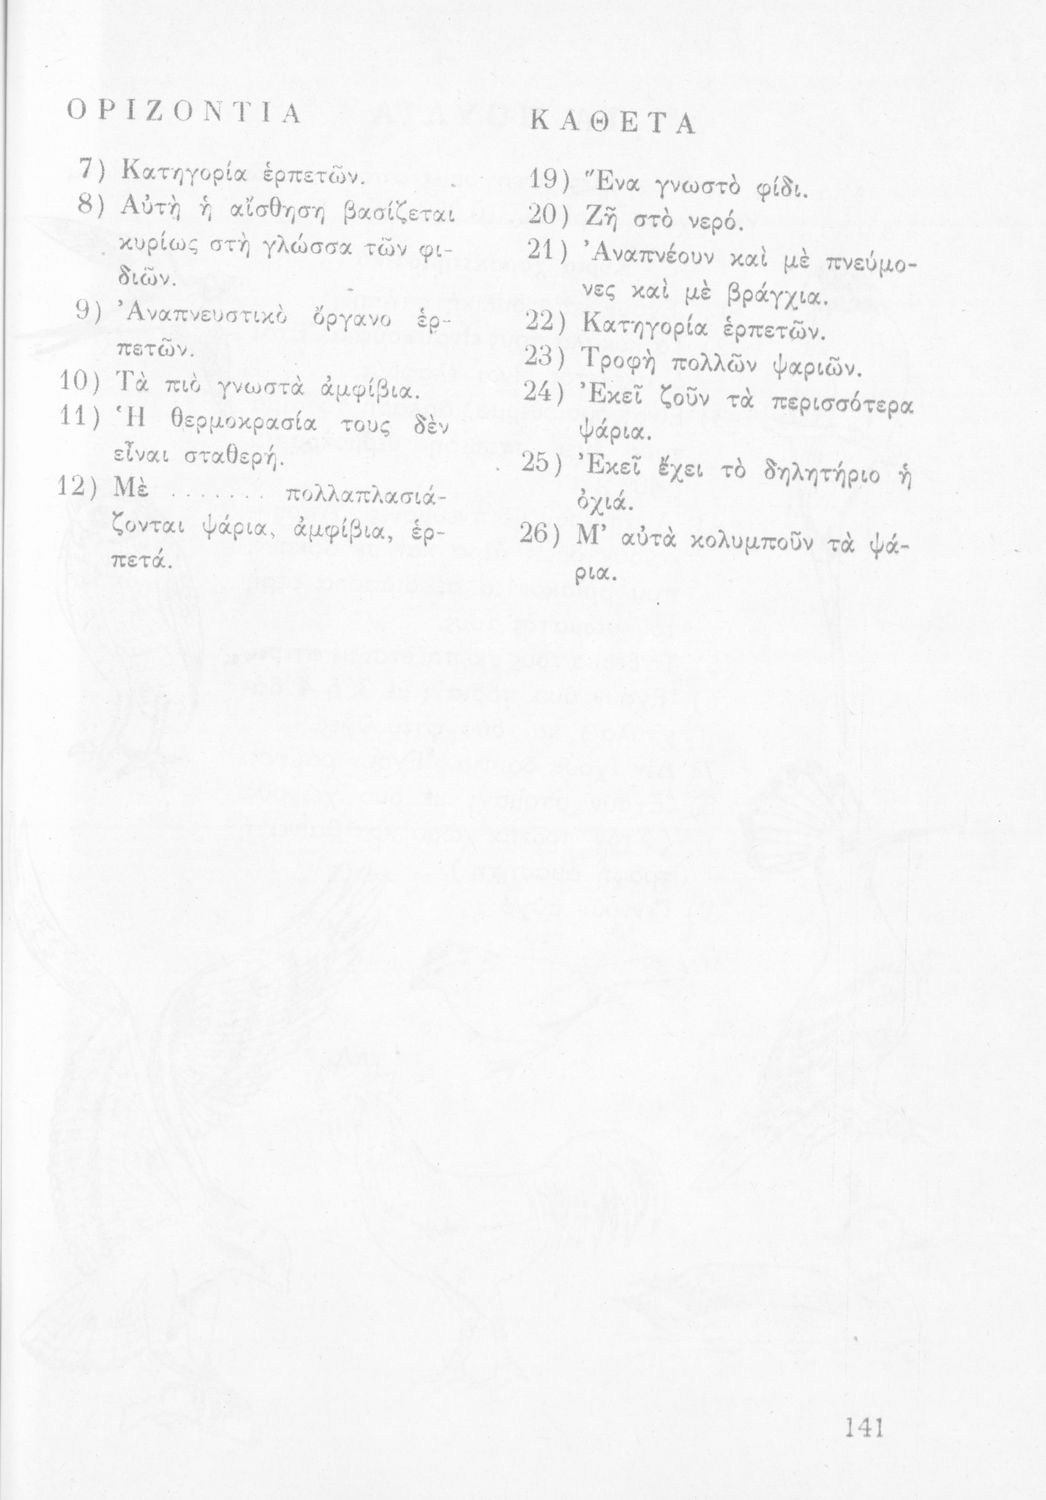 ΟΡΙΖΟΝΤΙΑ
7) Κατηγορία ἑρπετῶν.
8) Αὐτὴ ἡ αἴσθηση βασίζεται
κυρίως στὴ γλώσσα τῶν φι-
διῶν.
9) Ἀναπνευστικὸ ὄργανο ἑρ-
πετῶν.
10) Τὰ πιὸ γνωστὰ ἀμφίβια.
11) Ἡ θερμοκρασία τους δὲν
εἶναι σταθερή.
12) Μὲ ....... πολλαπλασιά-
ζονται ψάρια, ἀμφίβια, ἑρ-
πετά.
ΚΑΘΕΤΑ
19) Ἕνα γνωστὸ φίδι.
20) Ζῆ στὸ νερό.
21) Ἀναπνέουν καὶ μὲ πνεύμο-
νες καὶ μὲ βράγχια.
22) Κατηγορία ἑρπετῶν.
23) Τροφὴ πολλῶν ψαριῶν.
24) Ἐκεῖ ζοῦν τὰ περισσότερα
ψάρια.
25) Ἐκεῖ ἔχει τὸ δηλητήριο ἡ
ὀχιά.
26) Μ' αὐτὰ κολυμποῦν τὰ ψά-
ρια.
141